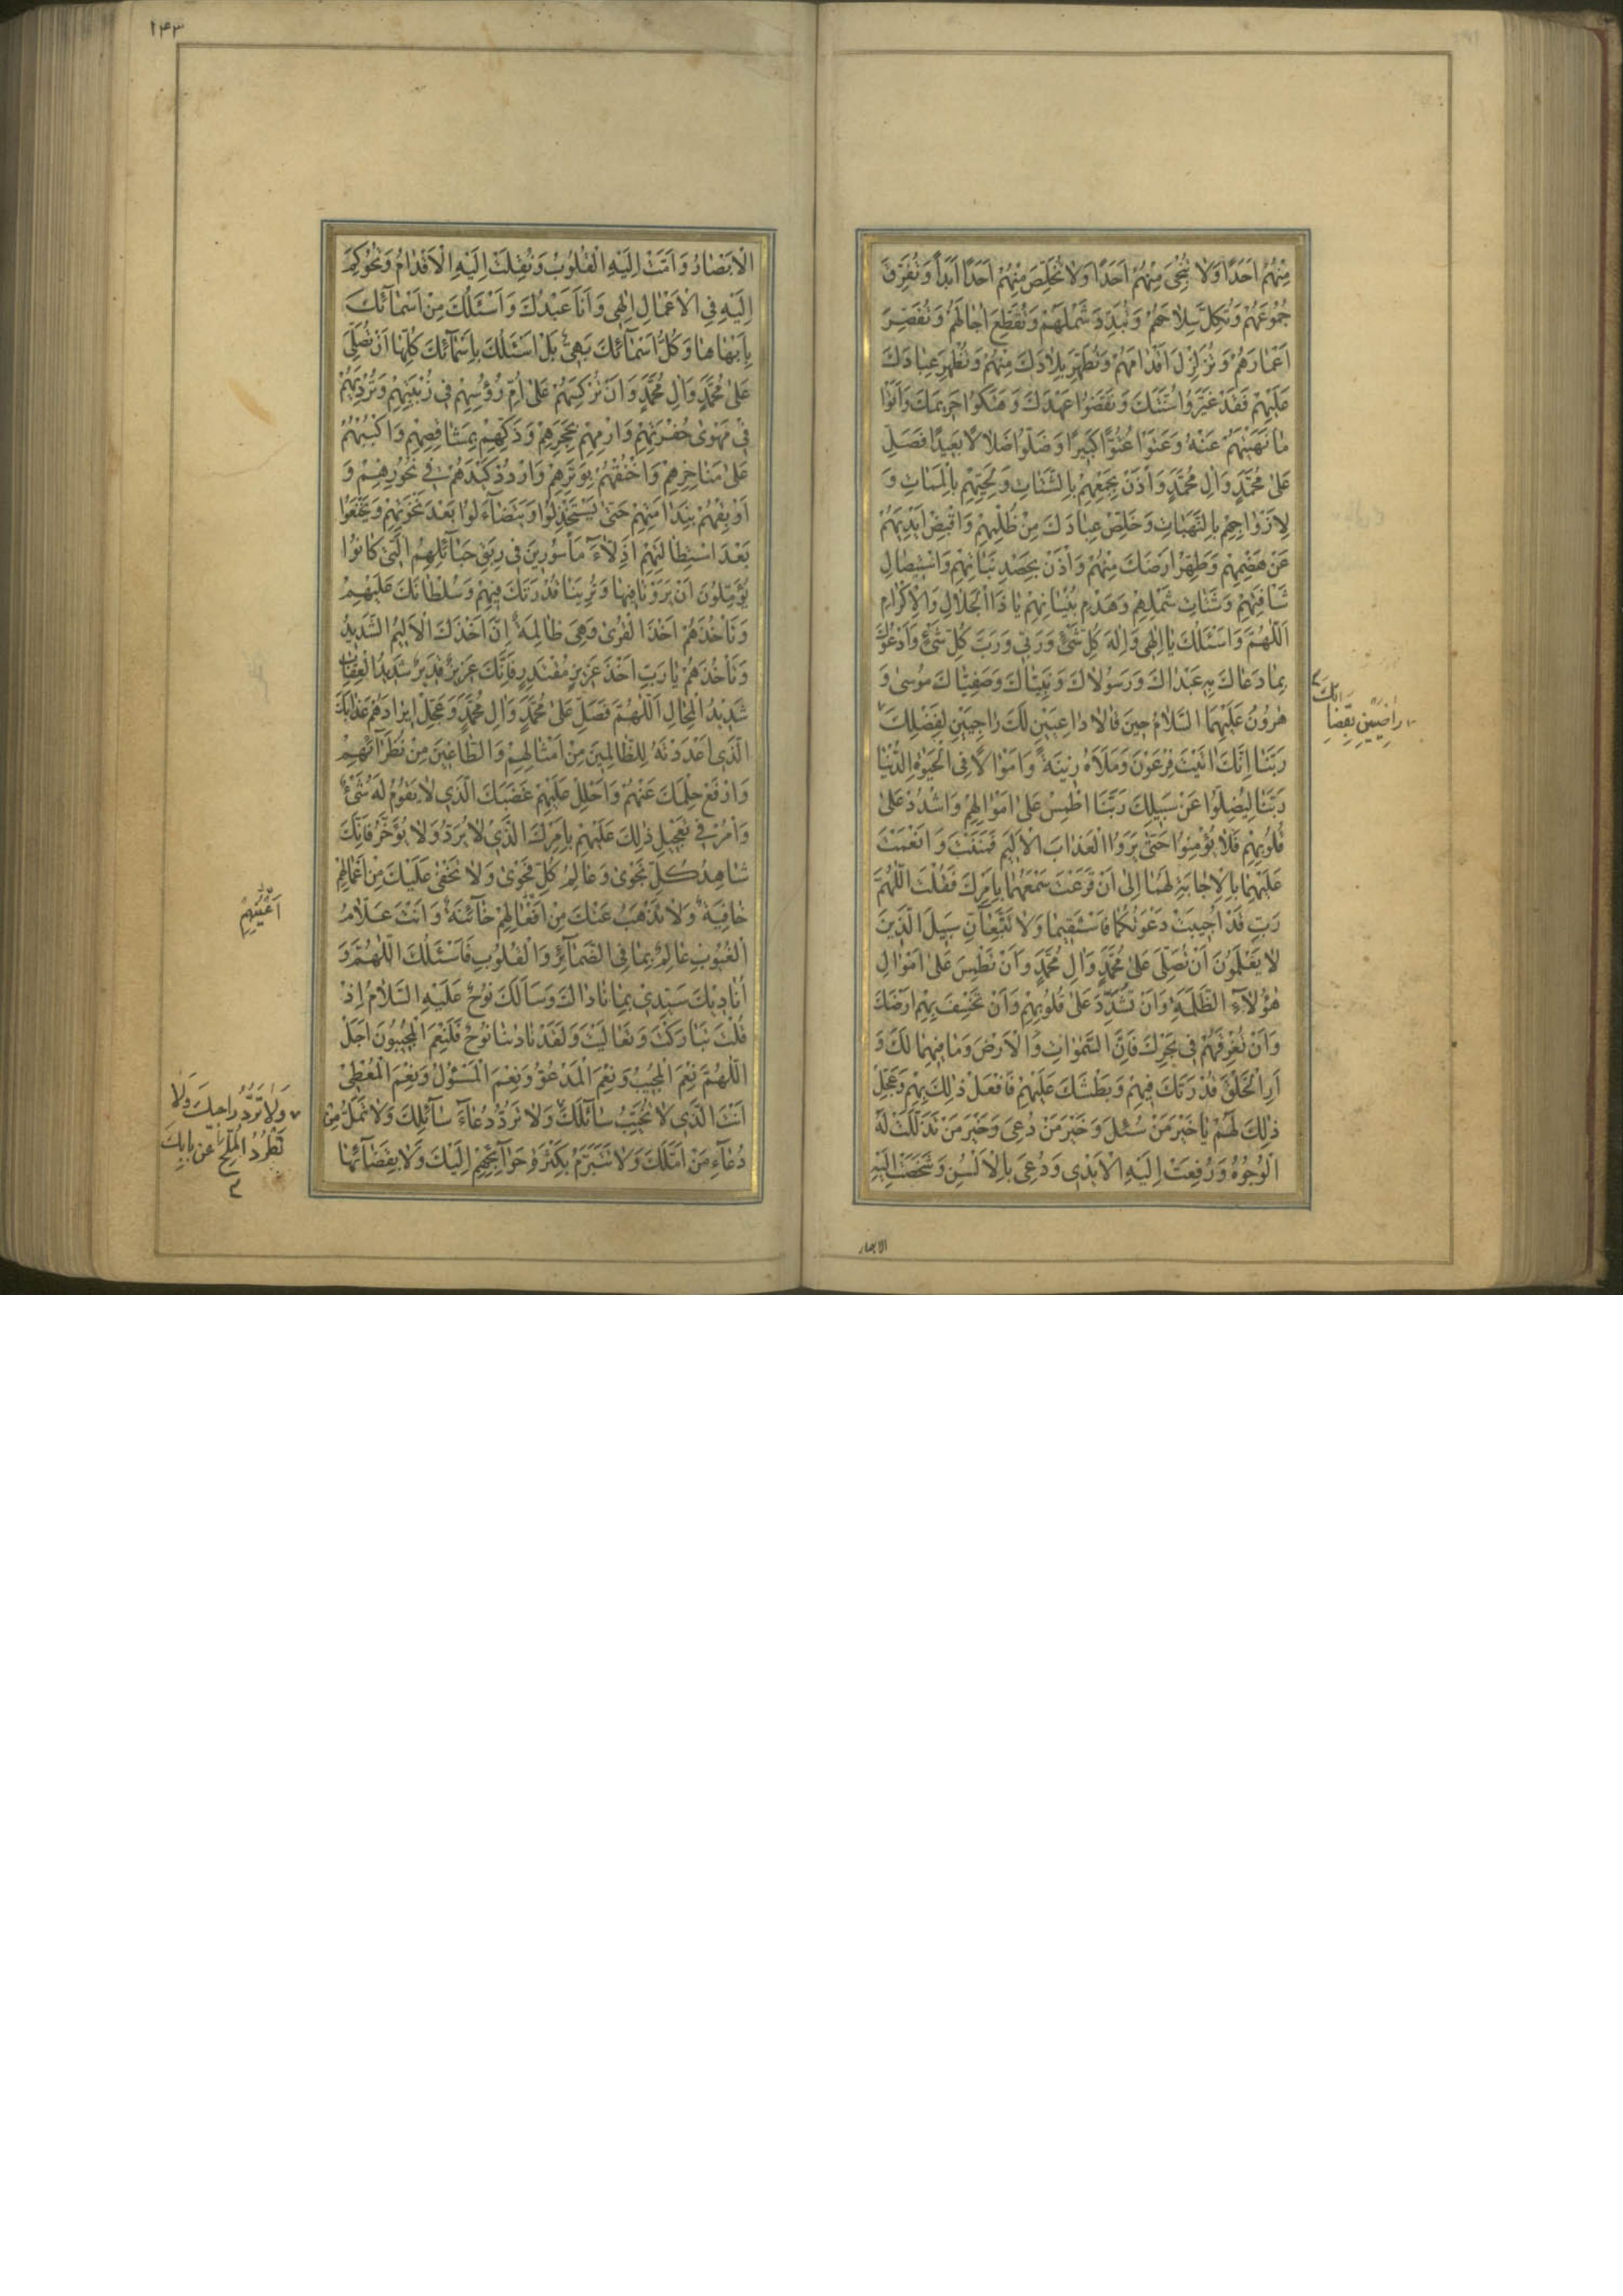 مِنْهُمْ اَحَدًا وَلَا تُنْجِىَ مِنْهُمْ اَحَدًا وَلَا تُخَلِّصَ مِنْهُمْ اَحَدًا اَبَدًا وَتُفَرِّقَ
جُمُوعَهُمْ وَتُكِلَّ سِلَاحَهُمْ وَتُبَدِّدَ شَمْلَهُمْ وَتُقَطِّعَ اٰجَالَهُمْ وَتُقَصِّرَ
اَعْمَارَهُمْ وَتُزَلْزِلَ اَقْدَامَهُمْ وَتُطَهِّرَ بِلَادَكَ مِنْهُمْ وَتُظْهِرَ عِبَادَكَ
عَلَيْهِمْ فَقَدْ غَيَّرُوا سُنَّتَكَ وَنَقَضُوا عَهْدَكَ وَهَتَكُوا حَرِيمَكَ وَاَتَوْا
مَا نَهَيْتَهُمْ عَنْهُ وَعَتَوْا عُتُوًّا كَبِيرًا وَضَلُّوا ضَلَالًا بَعِيدًا فَصَلِّ
عَلٰى مُحَمَّدٍ وَاٰلِ مُحَمَّدٍ وَأْذَنْ بِجَمْعِهِمْ بِالشَّتَاتِ وَلِحَيِّهِمْ بِالْمَمَاتِ وَ
لِاَزْوَاجِهِمْ بِالنَّهَبَاتِ وَخَلِّصْ عِبَادَكَ مِنْ ظُلْمِهِمْ وَاقْبِضْ اَيْدِيَهُمْ
عَنْ هَضْمِهِمْ وَطَهِّرْ اَرْضَكَ مِنْهُمْ وَأْذَنْ بِحَصْدِ نَبَاتِهِمْ وَاسْتِيصَالِ
شَأْفَتِهِمْ وَشَتَاتِ شَمْلِهِمْ وَهَدْمِ بُنْيَانِهِمْ يَا ذَا الْجَلَالِ وَالْاِكْرَامِ
اَللّٰهُمَّ وَاَسْئَلُكَ يَا اِلٰهِى وَاِلٰهَ كُلِّ شَىْءٍ وَرَبِّى وَرَبَّ كُلِّ شَىْءٍ وَاَدْعُوكَ
بِمَا دَعَاكَ بِهِ عَبْدَاكَ وَرَسُولَاكَ وَنَبِيَّاكَ وَصَفِيَّاكَ مُوسٰى وَ
هٰرُونُ عَلَيْهِمَا السَّلَامُ حِينَ قَالَا دَاعِيَيْنِ لَكَ رَاجِيَيْنِ لِفَضْلِكَ
رَبَّنَا اِنَّكَ اٰتَيْتَ فِرْعَوْنَ وَمَلَاَهُ زِينَةً وَاَمْوَالًا فِى الْحَيٰوةِ الدُّنْيَا
رَبَّنَا لِيُضِلُّوا عَنْ سَبِيلِكَ رَبَّنَا اطْمِسْ عَلٰى اَمْوَالِهِمْ وَاشْدُدْ عَلٰى
قُلُوبِهِمْ فَلَا يُؤْمِنُوا حَتّٰى يَرَوُا الْعَذَابَ الْاَلِيمَ فَمَنَنْتَ وَاَنْعَمْتَ
عَلَيْهِمَا بِالْاِجَابَةِ لَهُمَا اِلٰى اَنْ قَرَعْتَ سَمْعَهُمَا بِاَمْرِكَ فَقُلْتَ اللّٰهُمَّ
رَبِّ قَدْ اُجِيبَتْ دَعْوَتُكُمَا فَاسْتَقِيمَا وَلَا تَتَّبِعَانِّ سَبِيلَ الَّذِينَ
لَا يَعْلَمُونَ اَنْ تُصَلِّىَ عَلٰى مُحَمَّدٍ وَاٰلِ مُحَمَّدٍ وَاَنْ تَطْمِسَ عَلٰى اَمْوَالِ
هٰؤُلَاءِ الظَّلَمَةِ وَاَنْ تُشَدِّدَ عَلٰى قُلُوبِهِمْ وَاَنْ تَخْسِفَ بِهِمْ اَرْضَكَ
وَاَنْ تُغْرِقَهُمْ فِى بَحْرِكَ فَاِنَّ السَّمٰوَاتِ وَالْاَرْضَ وَمَا فِيهِمَا لَكَ وَ
اَرِ الْخَلْقَ قُدْرَتَكَ فِيهِمْ وَبَطْشَكَ عَلَيْهِمْ فَافْعَلْ ذٰلِكَ بِهِمْ وَعَجِّلْ
ذٰلِكَ لَهُمْ يَا خَيْرَ مَنْ سُئِلَ وَخَيْرَ مَنْ دُعِىَ وَخَيْرَ مَنْ تَذَلَّلَتْ لَهُ
الْوُجُوهُ وَرُفِعَتْ اِلَيْهِ الْاَيْدِى وَدُعِىَ بِالْاَلْسُنِ وَشَخَصَتْ اِلَيْهِ
رَاضِيَيْنِ بِقَضَائِكَ
الابصار
١٤٣
الْاَبْصَارُ وَاَمَّتْ اِلَيْهِ الْقُلُوبُ وَنُقِلَتْ اِلَيْهِ الْاَقْدَامُ وَتُحُوكِمَ
اِلَيْهِ فِى الْاَعْمَالِ اِلٰهِى وَاَنَا عَبْدُكَ وَاَسْئَلُكَ مِنْ اَسْمَائِكَ
بِاَبْهَاهَا وَكُلُّ اَسْمَائِكَ بَهِىٌّ بَلْ اَسْئَلُكَ بِاَسْمَائِكَ كُلِّهَا اَنْ تُصَلِّىَ
عَلٰى مُحَمَّدٍ وَاٰلِ مُحَمَّدٍ وَاَنْ تُرْكِسَهُمْ عَلٰى اُمِّ رُؤُسِهِمْ فِى زُبْيَتِهِمْ وَتُرْدِيَهُمْ
فِى مَهْوٰى حُفْرَتِهِمْ وَارْمِهِمْ بِحَجَرِهِمْ وَذَكِّهِمْ بِمَشَاقِصِهِمْ وَاكْبُبْهُمْ
عَلٰى مَنَاخِرِهِمْ وَاخْنُقْهُمْ بِوَتَرِهِمْ وَارْدُدْ كَيْدَهُمْ فِى نُحُورِهِمْ وَ
اَوْبِقْهُمْ بِنَدَامَتِهِمْ حَتّٰى يَسْتَخْذِلُوا وَيَتَضَاءَلُوا بَعْدَ نَخْوَتِهِمْ وَيَخْشَعُوا
بَعْدَ اسْتِطَالَتِهِمْ اَذِلَّاءَ مَأْسُورِينَ فِى رِبَقِ حَبَائِلِهِمُ الَّتِى كَانُوا
يُؤَمِّلُونَ اَنْ يَرَوْنَا فِيهَا وَتُرِيَنَا قُدْرَتَكَ فِيهِمْ وَسُلْطَانَكَ عَلَيْهِمْ
وَتَأْخُذَهُمْ اَخْذَ الْقُرٰى وَهِىَ ظَالِمَةٌ اِنَّ اَخْذَكَ الْاَلِيمُ الشَّدِيدُ
وَتَأْخُذَهُمْ يَا رَبِّ اَخْذَ عَزِيزٍ مُقْتَدِرٍ فَاِنَّكَ عَزِيزٌ قَدِيرٌ شَدِيدُ الْعِقَابِ
شَدِيدُ الْمِحَالِ اَللّٰهُمَّ فَصَلِّ عَلٰى مُحَمَّدٍ وَاٰلِ مُحَمَّدٍ وَعَجِّلْ اِيرَادَهُمْ عَذَابَكَ
الَّذِى اَعْدَدْتَهُ لِلظَّالِمِينَ مِنْ اَمْثَالِهِمْ وَالطَّاغِينَ مِنْ نُظَرَائِهِمْ
وَارْفَعْ حِلْمَكَ عَنْهُمْ وَاحْلُلْ عَلَيْهِمْ غَضَبَكَ الَّذِى لَا يَقُومُ لَهُ شَىْءٌ
وَأْمُرْ فِى تَعْجِيلِ ذٰلِكَ عَلَيْهِمْ بِاَمْرِكَ الَّذِى لَا يُرَدُّ وَلَا يُؤَخَّرُ فَاِنَّكَ
شَاهِدُ كُلِّ نَجْوٰى وَعَالِمُ كُلِّ فَحْوٰى وَلَا تَخْفٰى عَلَيْكَ مِنْ اَعْمَالِهِمْ
خَافِيَةٌ وَلَا تَذْهَبُ عَنْكَ مِنْ اَفْعَالِهِمْ خَائِنَةٌ وَاَنْتَ عَلَّامُ
الْغُيُوبِ عَالِمٌ بِمَا فِى الضَّمَائِرِ وَالْقُلُوبِ فَاَسْئَلُكَ اللّٰهُمَّ وَ
اُنَادِيكَ سَيِّدِى بِمَا نَادَاكَ وَسَاَلَكَ نُوحٌ عَلَيْهِ السَّلَامُ اِذْ
قُلْتَ تَبَارَكْتَ وَتَعَالَيْتَ وَلَقَدْ نَادٰينَا نُوحٌ فَلَنِعْمَ الْمُجِيبُونَ اَجَلْ
اَللّٰهُمَّ نِعْمَ الْمُجِيبُ وَنِعْمَ الْمَدْعُوُّ وَنِعْمَ الْمَسْئُولُ وَنِعْمَ الْمُعْطِى
اَنْتَ الَّذِى لَا تُخَيِّبُ سَائِلَكَ وَلَا تَرُدُّ دُعَاءَ سَائِلِكَ وَلَا تَمَلُّ مِنْ
دُعَاءِ مَنْ اَمَّلَكَ وَلَا تَتَبَرَّمُ بِكَثْرَةِ حَوَائِجِهِمْ اِلَيْكَ وَلَا بِقَضَائِهَا
اَعْيُنِهِمْ
وَلَا تَرُدُّ رَاجِيكَ وَلَا
تَطْرُدُ الْمُلِحَّ عَنْ بَابِكَ